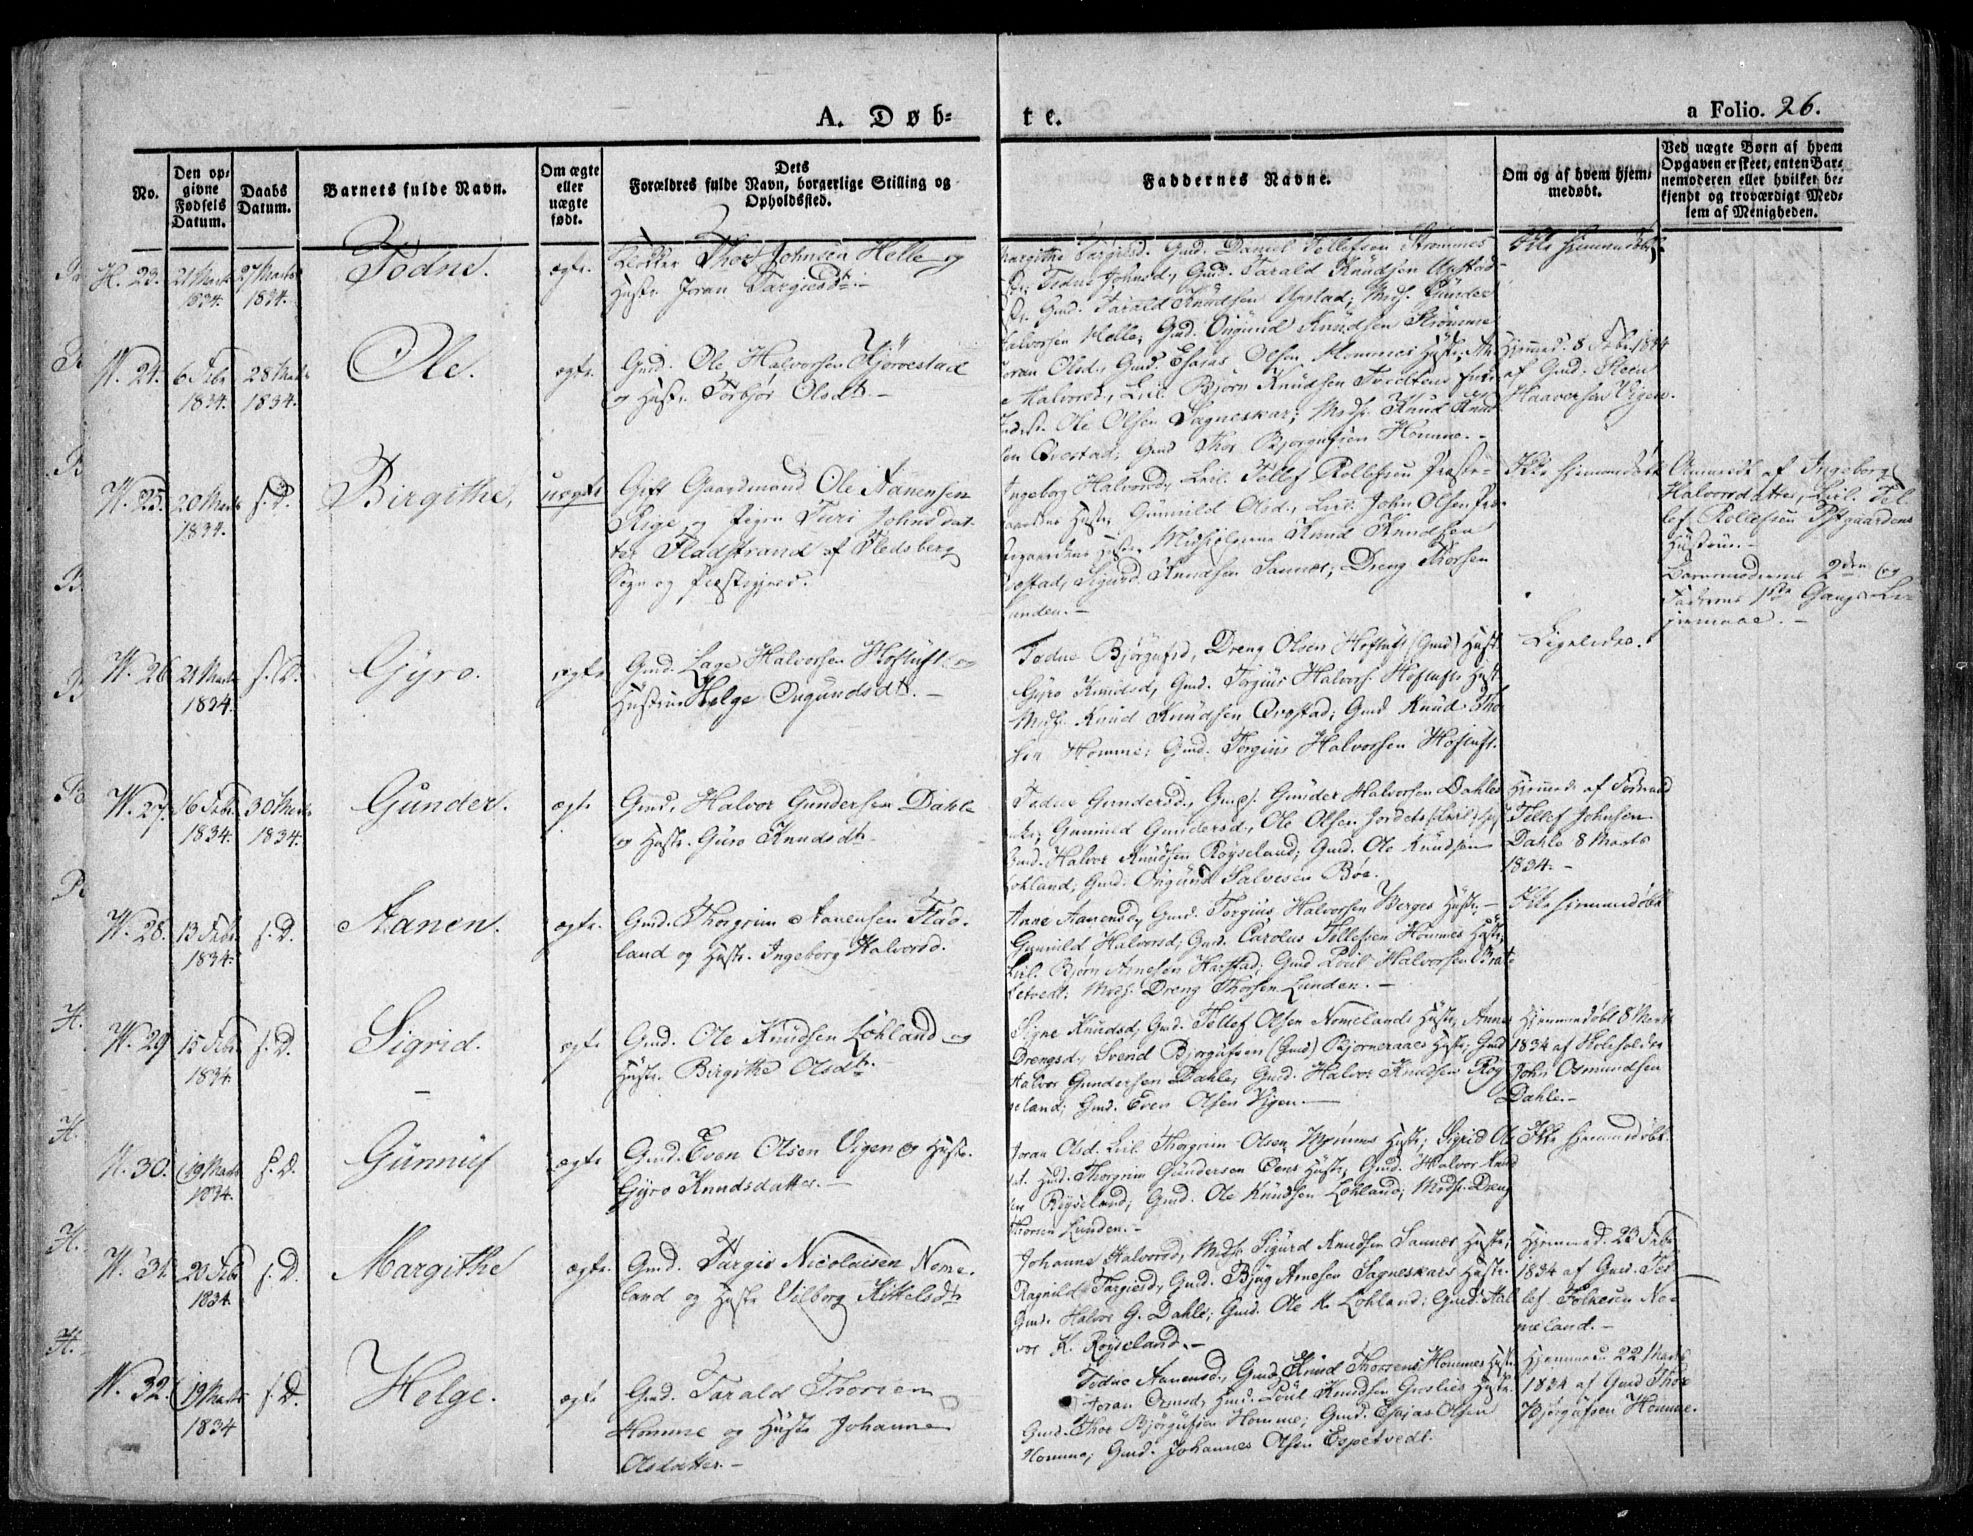 A. Døb-
te.
a Folio. 26.
No.
Den op-
givne
Fødsels
Datum.
Daabs
Datum.
Barnets fulde Navn.
Om ægte
eller
uægte
født.
Dets
Forældres fulde Navn, borgerlige Stilling og
Opholdssted.
Faddernes Navne.
Om og af hvem hjem-
medøbt.
Ved uægte Børn af hvem
Opgaven er skeet, enten Bar-
nemoderen eller hvilket be-
kjendt og troværdigt Med-
lem af Menigheden.
H. 23.
21 Marts
1834.
27 Marts
1834.
Todne.
ægte.
Klokker Thor Johnsen Helle og
Hustr. Joran Targiesdtr. -
Margithe Targiesd. Gmd. Daniel Tellefsen Strømmes
Hstr. Todne Johnsd, Gmd. Tarald Knudsen Upstad
Hstr. Gmd. Tarald Knudsen Upstad; Mds. Gunder
Halvorsen Helle; Gmd. Ougund Knudsen Strømme
Ikke hjemmedøbt.
N. 24.
6 Febr
1834.
28 Marts
1834.
Ole.
ægte.
Gmd. Ole Halvorsen Kjørrestad
og Hustr. Torbjør Olsdtr. -
Joran Olsd, Gmd. Esaias Olsen Hommes Hustr; An
e Halvorsd, Leil. Bjørn Knudsen Tveitens
Ole Olsen Sagneskar; Mds. Knud Knud
sen Qvestad; Gmd Thor Bjørgufsen Homme. -
Hjemmed. 8 Febr. 1834
af Gmd. Steen
Haavorsen Vigen.
N. 25.
20 Marts
1834.
s. D.
Birgithe,
uægte
Gift Gaardmand Ole Aanensen
Rige, og Pigen Turi Johnsdat-
ter Fladstrand af Fledsberg
Sogn og Præstegjeld.
Ingeborg Halvorsd, Leil. Tellef Rollefsen Præste-
gaardens Hustr, Gunnild Olsd, Leil. John Olsen Præ
stegaardens Hustr Knud Knudsen
Qvestad, Sigurd Knudsen Sannes; Dreng Thorsen
Lunden. -
Ikke hjemmedøbt
Anmeldt af Ingeborg
Halvorsdatter, Leil. Tel
lef Rollefsen Pstgaardens
Hustrue. -
Barnemoderens 2den og
Faderens 1ste Gangs Lei-
ermaal. -
N. 26
21 Marts
1834.
s. D.
Gyro.
ægte
Gmd. Lage Halvorsen Hofluft og
Hustrue Helge Ougundsdtr. -
Todne Bjørgufsd, Dreng Olsen Hoftufts (Gmd) Hust.
Gyro Knudsd, Gmd. Torgius Halvors. Hoflufts Hust
Mds. Knud Knudsen Qvestad; Gmd Knud Tho
sen Homme; Gmd. Torgius Halvorsen Hofluft.
Ligeledes.
N. 27.
16 Febr
1834.
30 Marts
1834.
Gunder.
ægte
Gmd. Halvor Gundersen Dahle
og Hustr. Guro Knudsdtr
Todne Gundersd, Gmd. Gunder Halvorsen Dahles
Gunnild Gundersd, Ole Olsen
Gmd. Halvor Knudsen Røyseland; Gmd. Ole Knudsen
Løhland; Gmd. Ougund Salvesen Bøe.
Hjemmed. af
Tellef Johnsen
Dahle 8 Marts
1834. -
N. 28.
13 Febr
1834.
s. D.
Aanen.
ægte.
Gmd. Thorgrim Aanensen Flad-
land og Hustr. Ingeborg Halvorsd.
Anne Aanensd, Gmd. Torgius Halvorsen Berges Hustr; -
Gunnild Halvorsd; Gmd. Carolus Tellefsen Hommes Hustr;
Leil. Bjørn Arnesen Harstad; Gmd Poul Halvorsen Brat-
letvedt; Mds. Dreng Thorsen Lunden. -
Ikke hjemmedøbt
N. 29
15 Febr
1834
s. D.
Sigrid.
ægte
Gmd. Ole Knudsen Løhland og
Hustr. Birgithe Olsdtr.
Signe Knudsd; Gmd. Tellef Olsen Nomelands Hustr; Anne
Drengsd, Svend Bjørgufsen (Gmd) Bjørneraaes Hustr; Gmd
Halvor Gundersen Dahle; Gmd. Halvor Knudsen Røy
seland; Gmd. Even Olsen Vigen. -
Hjemmedøbt 8 Marts
1834 af Skoleholder
John Osmundsen
Dahle. -
N. 30.
19 Marts
1834.
s. D.
Gunnuf
ægte
Gmd. Even Olsen Vigen og Hustr.
Gyro Knudsdatter. -
Joran Olsd. Leil. Thorgrim Olsen Moens Hustr; Sigrid Ols
dt. Gmd. Thorgrim Gundersen Øens Hustr; Gmd. Halvor Knud
sen Røyseland; Gmd. Ole Knudsen Løhland; Mds. Dreng
Thorsen Lunden. -
Ikke hjemmedøbt.
N. 31.
20 Febr
1834
s. D.
Margithe
ægte.
Gmd. Targie Nicolaisen Nome-
land og Hustr Vilborg Kittelsdtr
Johanne Halvorsd, Mds. Sigurd Knudsen Sannes Hustr;
Ragnild Targiesd, Gmd. Bjug Arnesen Sagneskars Hustr.
Gmd. Halvor G. Dahle; Gmd. Ole K. Løhland; Gmd. Hal
vor K. Røyseland. -
Hjemmed. 23 Febr
1834 af Gmd. Tel
lef Folkesen No-
meland. -
N. 32.
19 Marts
1834
s. D.
Helge.
ægte
Gmd. Tarald Thorsen
Homme og Hustr Johanne
Olsdatter. -
Todne Aanensd, Gmd Knud Thorsens Hommes Hustr.
Joran Ormsd, Gmd. Poul Knudsen Greslies Hustr.
Gmd. Thor Bjørgufsen Homme; Gmd. Esajas Olsen
Homme; Gmd. Johannes Olsen Espetvedt.
Hjemmed. 22 Marts
1834 af Gmd Thor
Bjørgufsen Homme.